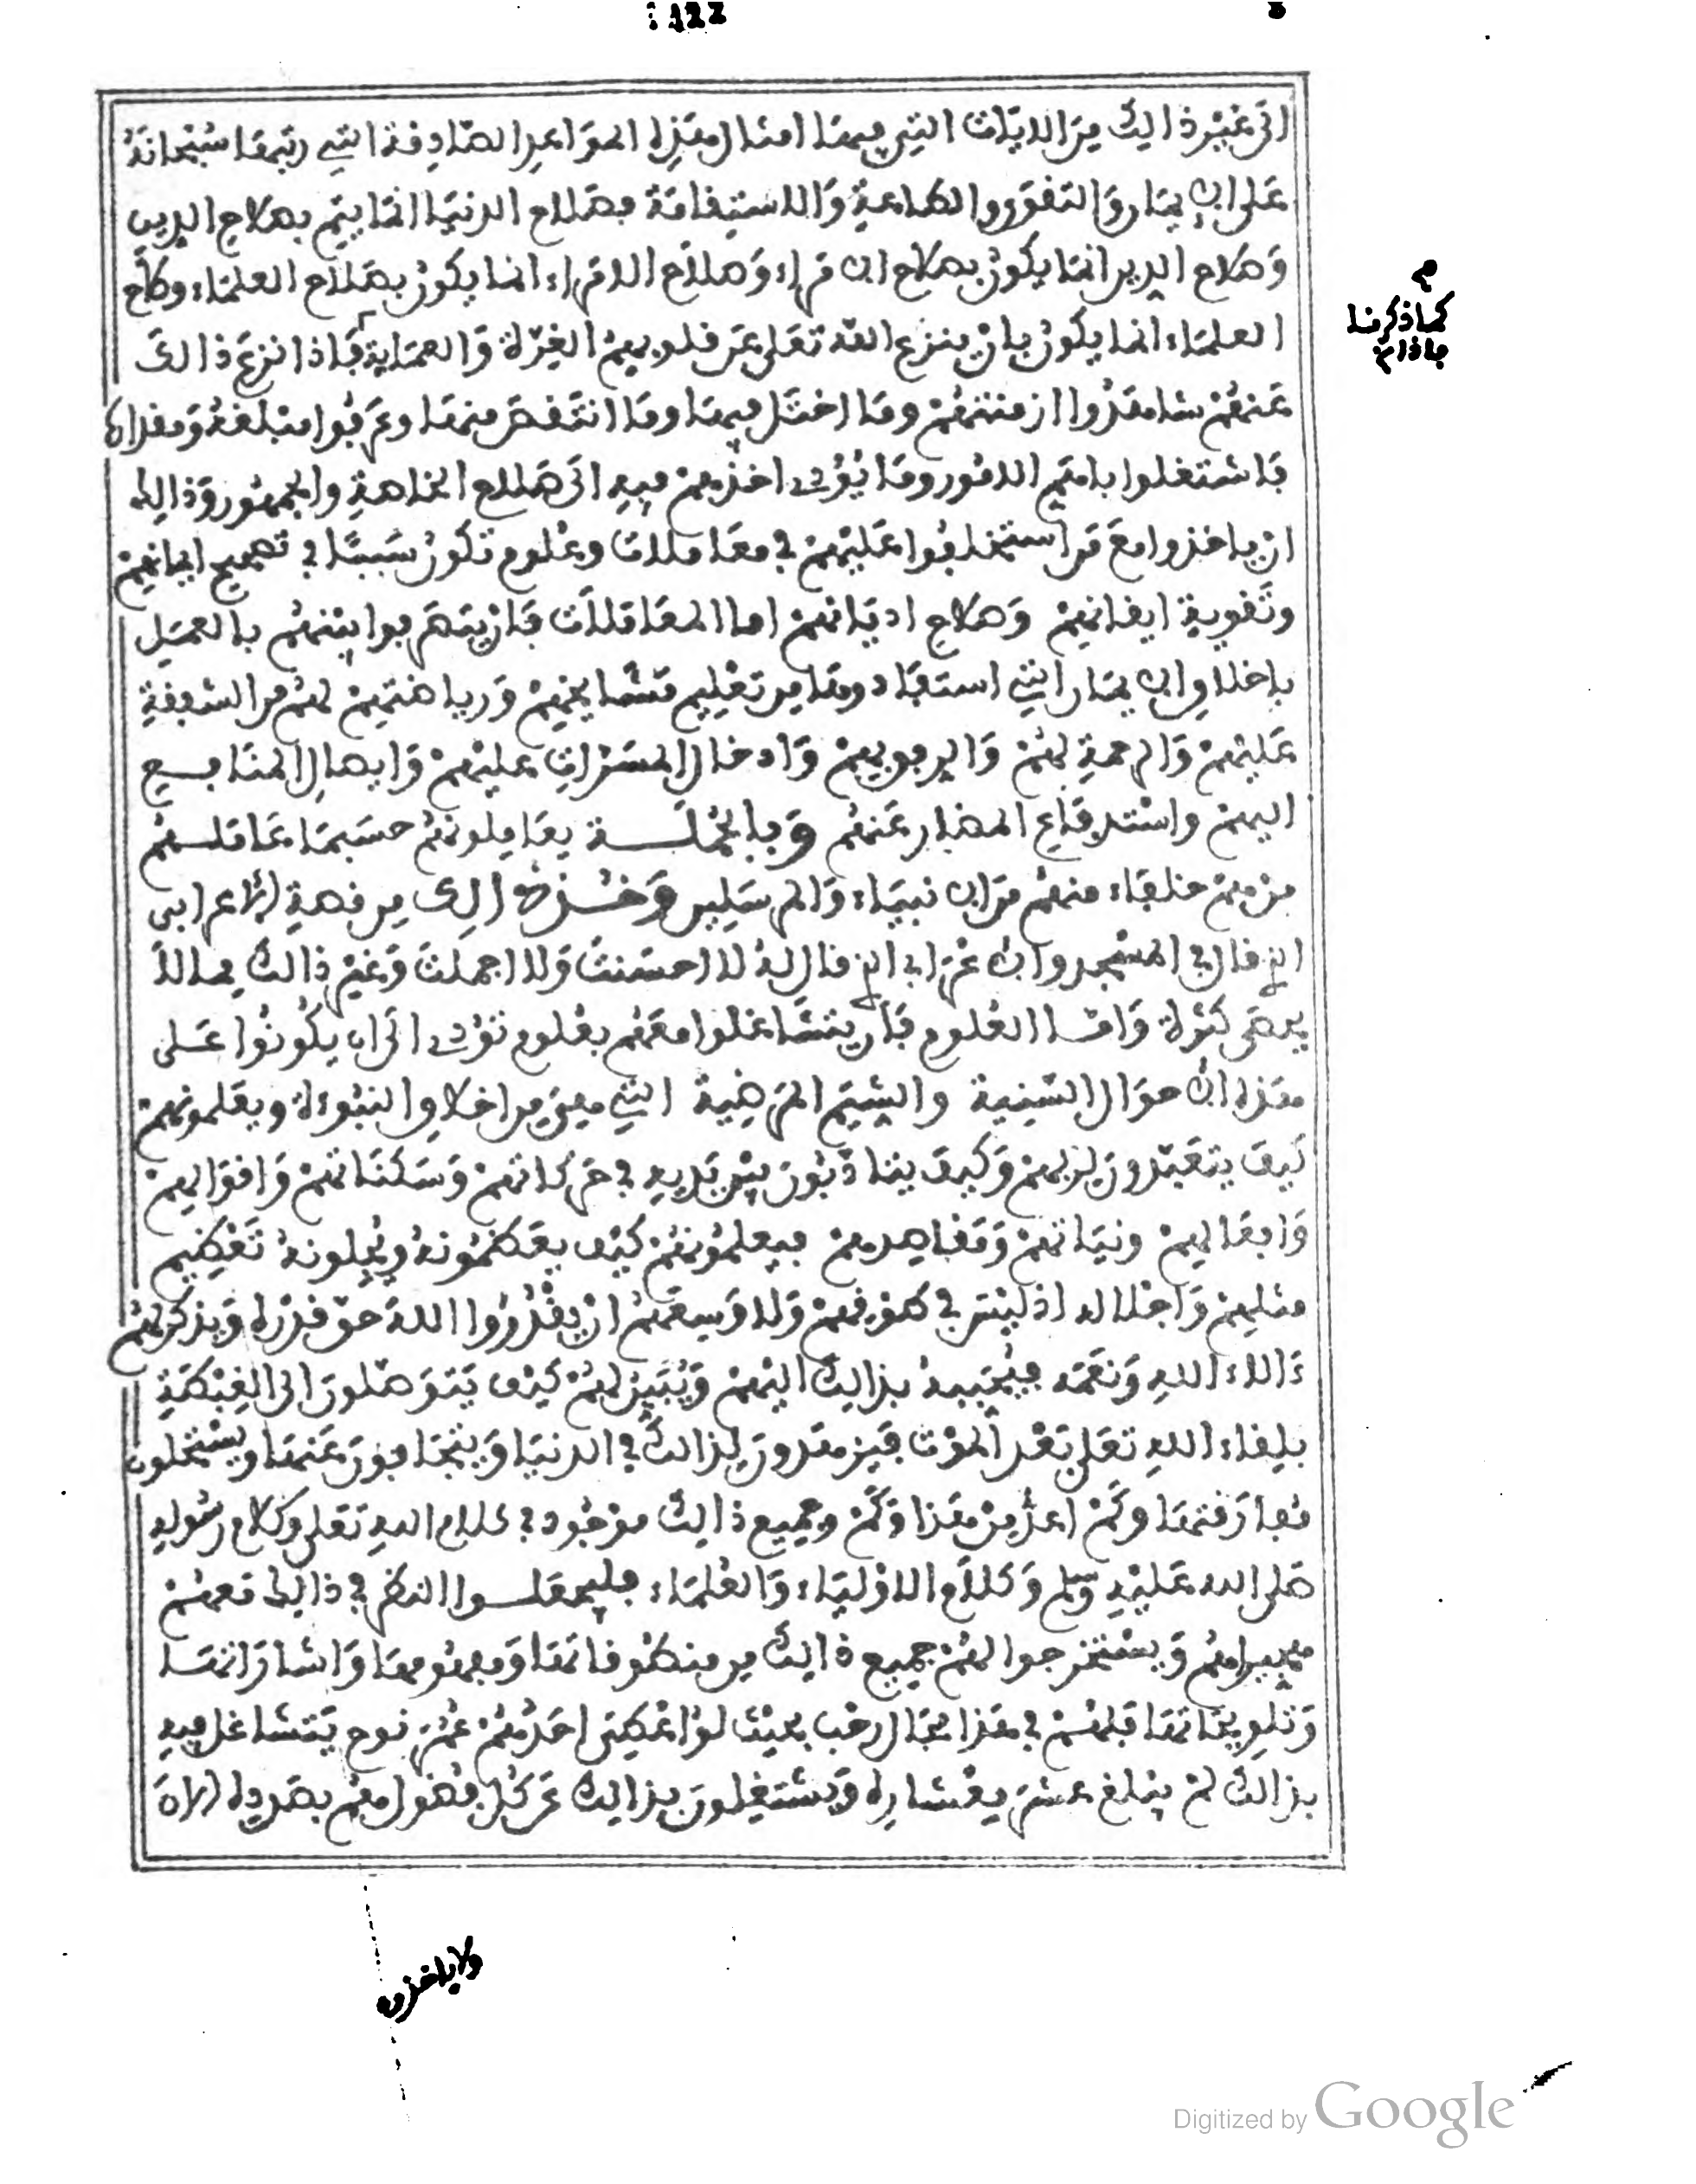 122
الى غير ذالك من الايات التي فيها امثال هذه المواعد الصادقة التي رتبها سبحانه
على الايمان والتقوى والطاعة والاستقامة فصلاح الدنيا انما يتم بصلاح الدين
وصلاح الدين انما يكون بصلاح الامراء وصلاح الامراء انما يكون بصلاح العلماء وصلاح
العلماء انما يكون بان ينزع الله تعلى عن قلوبهم الغرة والعماية فاذا نزع ذالك
عنهم شاهدوا ازمنتهم وما اختل فيها وما انتقص منها وعرفوا مبلغه ومقداره
فاشتغلوا باهم الامور وما يؤدى اخذهم فيه الى صلاح الخاصة والجمهور وذالك
ان ياخذوا مع من استخلفوا عليهم في معاملات وعلوم تكون سببا في تصحيح ايمانهم
وتقوية ايقانهم وصلاح اديانهم اما المعاملات فان يتصرفوا بينهم بالعمل
باخلاق الايمان التي استفادوها من تعليم مشايخهم ورياضتهم لهم من الشفقة
عليهم والرحمة لهم والرفق بهم وادخال المسرات عليهم وايصال المنافع
اليهم واستدفاع المضار عنهم وبالجملة يعاملونهم حسبما عاملهم
من هم خلفاء منهم من الانبياء والمرسلين وخذ ذالك من قصة الاعرابي
الذي قال في المسجد والاعرابي الذي قال له لا احسنت ولا اجملت وغير ذالك مما لا
يحصى كثرة واما العلوم فان يتشاغلوا معهم بعلوم تؤدى الى ان يكونوا على
هذه الاحوال السنية والشيم المرضية التي هي من اخلاق النبوءة ويعلمونهم
كيف يتعبدون لربهم وكيف يتادبون بين يديه في حركاتهم وسكناتهم واقوالهم
وافعالهم ونياتهم ومقاصدهم فيعلمونهم كيف يعظمونه ويجلونه تعظيم
مثلهم واجلاله اذ ليس في طوقهم ولا وسعهم ان يقدروا الله حق قدره ويذكرلهم
ءالاء الله ونعمه فيحببه بذالك اليهم ويبين لهم كيف يتوصلون الى الغبطة
بلقاء الله تعلى بعد الموت فيزهدون لذالك في الدنيا ويتجافون عنها ويستحلون
مفارقتها وكم اعد من هذا وكم وجميع ذالك موجود في كلام الله تعلى وكلام رسوله
صلى الله عليه وسلم وكلام الاولياء والعلماء فليجعلوا النظر في ذالك معهم
هجيراهم ويستخرجوا لهم جميع ذالك من منطوقاتها ومفهومها واشاراتها
وتلويحاتها فلهم في هذا مجال رحب بحيث لو اعطي احدهم عمر نوح يتشاغل فيه
بذالك لم يبلغ عشر معشاره ويشتغلون بذالك عن كل فضول هم بصدده الان
كما ذكرنا
فاذا تم
ولا ياخذون
Digitized by Google